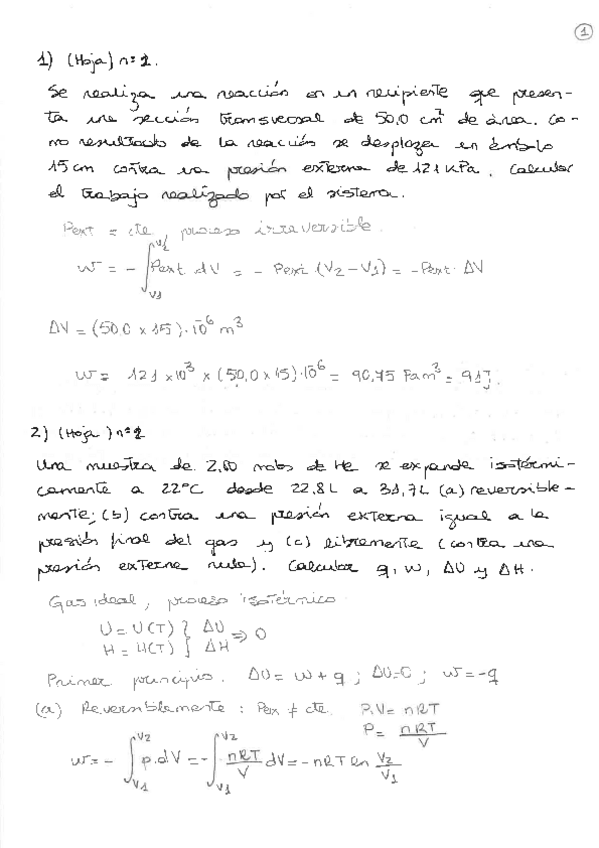 1
1) (Hoja) nº 1.
Se realiza una reacción en un recipiente que presen-
ta una sección transversal de 50,0 cm² de área. Co-
mo resultado de la reacción se desplaza un émbolo
15 cm contra una presión externa de 121 kPa. Calcular
el trabajo realizado por el sistema.
Pext = cte, proceso irreversible.
w = - ∫V1 V2 Pext dV = - Pext (V2 - V1) = - Pext · ΔV
ΔV = (50,0 x 15)·10⁻⁶ m³
w = 121 x 10³ x (50,0 x 15)·10⁻⁶ = 90,75 Pa m³ = 91 J.
2) (Hoja) nº 1
Una muestra de 2,00 moles de He se expande isotérmi-
camente a 22ºC desde 22,8 L a 31,7 L (a) reversible-
mente; (b) contra una presión externa igual a la
presión final del gas y (c) libremente (contra una
presión externa nula). Calcular q, w, ΔU y ΔH.
Gas ideal, proceso isotérmico
U = U(T) } ΔU
H = H(T) } ΔH ⇒ 0
Primer principio. ΔU = w + q ; ΔU=0 ; w = -q
(a) Reversiblemente : Pex ≠ cte. P.V = nRT
P = nRT/V
w = - ∫V1 V2 p.dV = - ∫V1 V2 nRT/V dV = - nRT ln V2/V1